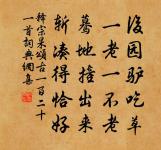 後园驴吃草
一老一不老
蓦地撞出来
斩凑得恰好
释宗杲頌古一百二十
一首詞典網集